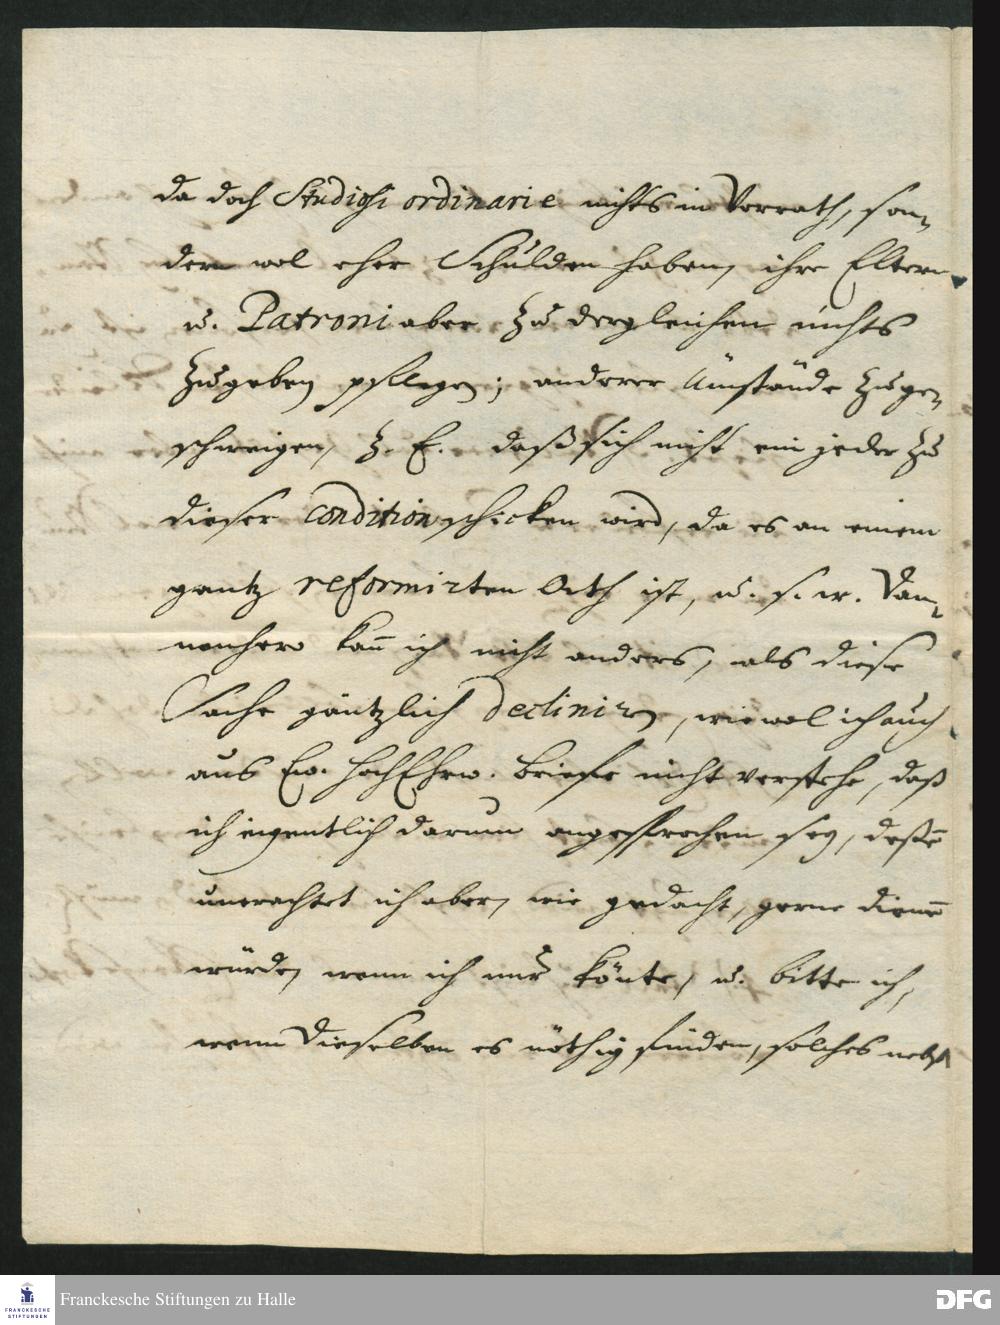 da doch Studiosi ordinarie nichts in Vorrath, son-
dern wol eher Schulden haben, ihre Eltern
u. Patroni aber zu dergleichen nichts
zugeben pflegen; anderer Umstände zuge-
schweigen, z. E. daß sich nicht ein jeder zu
dieser condition schicken wird, da es an einem
gantz reformirten Orth ist, u. s. w. Dan-
nenhero kan̄ ich nicht anders, als diese
Sache gäntzlich decliniren, wiewol ich auch
aus Ew. HochEhrw. Briefe nicht verstehe, daß
ich eigentlich darum angesprochen sey, deßen̄
unerachtet ich aber, wie gedacht, gerne dienen̄
würde, wenn ich nur könte, u. bitte ich,
wenn Dieselben es nöthig finden, solches nebst
FRANCKESCHE
STIFTUNGEN
Franckesche Stiftungen zu Halle
DFG